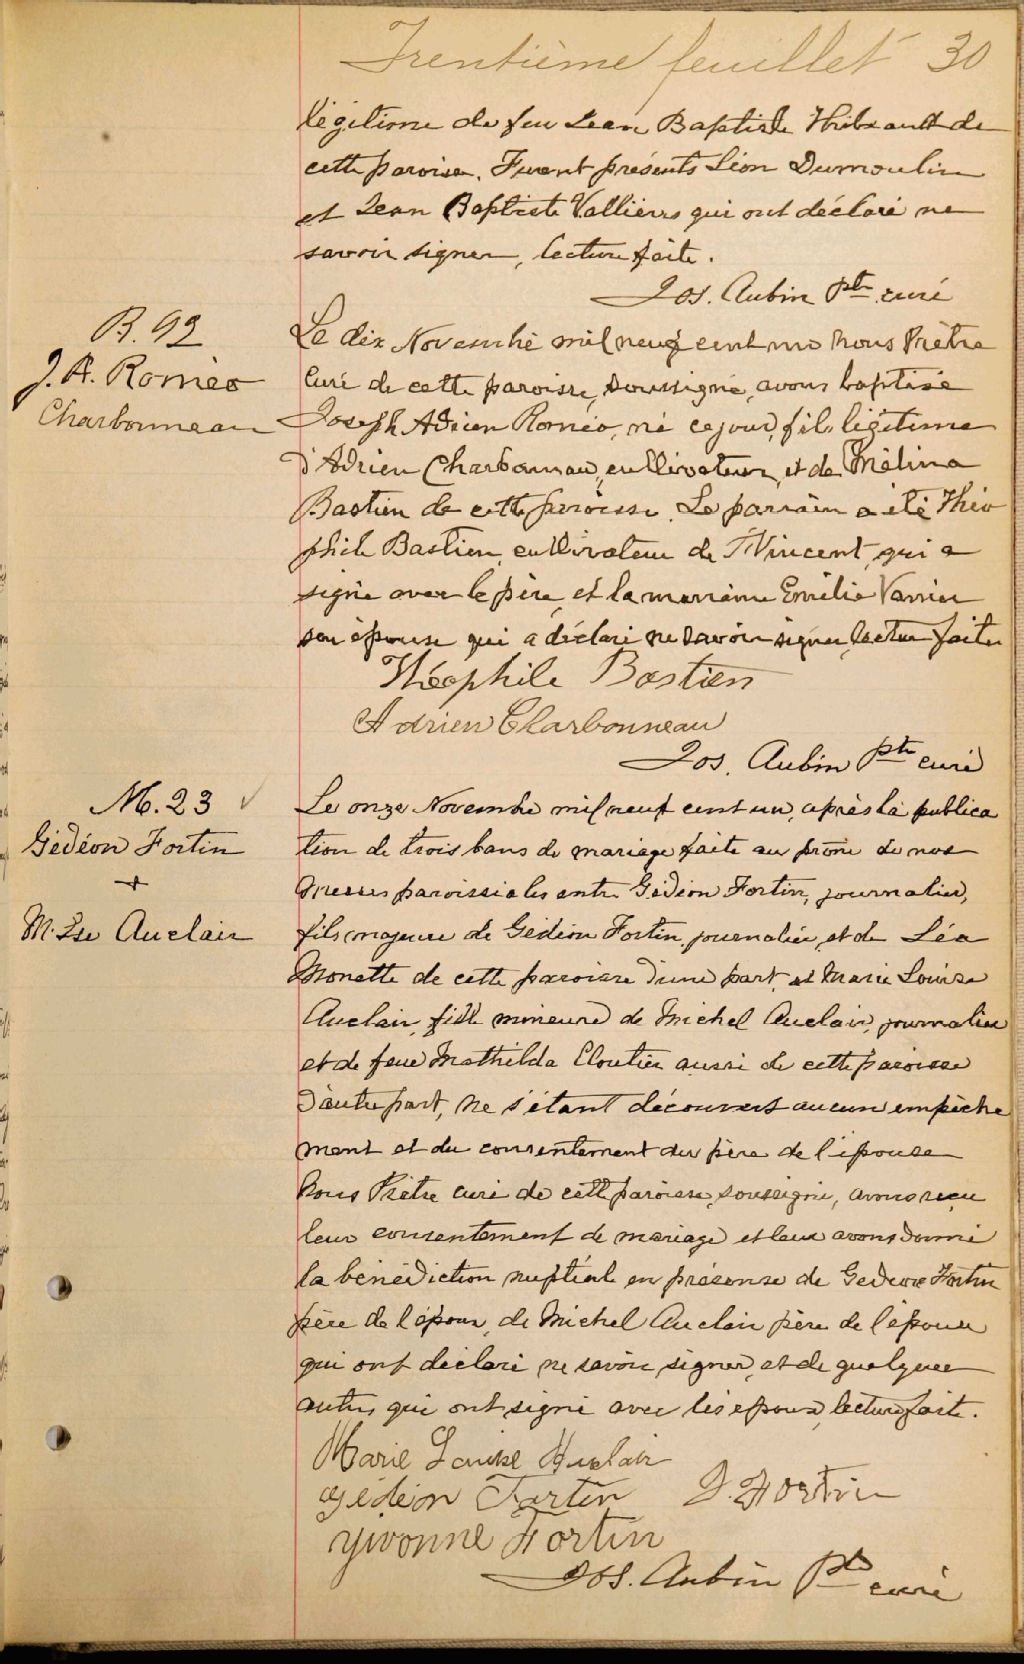 Trentième feuillet 30
légitime de feu Jean Baptiste Thibault de
cette paroisse. Furent présents Léon Dumoulin
et Jean Baptiste Vallières qui ont déclaré ne
savoir signer, lecture faite.
Jos. Aubin Ptre curé
B. 92
J. A. Roméo
Charbonneau
Le dix Novembre mil neuf cent un nous Prêtre
Curé de cette paroisse, soussigné, avons baptisé
Joseph Adrien Roméo, né ce jour, fils légitime
d'Adrien Charbonneau, cultivateur, et de Mélina
Bastien de cette paroisse. Le parrain a été Théo
phile Bastien, cultivateur de St Vincent, qui a
signé avec le père, et la marraine Emélie Vanier
son épouse qui a déclaré ne savoir signer, lecture faite
Théophile Bastien
Adrien Charbonneau
Jos. Aubin Ptre curé
M. 23
Gédéon Fortin
+
M. Lse Auclair
Le onze Novembre mil neuf cent un, après la publica
tion de trois bans de mariage faite au prône de nos
Messes paroissiales entre Gédéon Fortin, journalier,
fils majeur de Gédéon Fortin, journalier, et de Léa
Monette de cette paroisse d'une part, et Marie Louise
Auclair, fille mineure de Michel Auclair, journalier
et de feue Mathilda Cloutier aussi de cette paroisse
d'autre part, ne s'étant découvert aucun empêche
ment et du consentement du père de l'épouse
Nous Prêtre curé de cette paroisse, soussigné, avons reçu
leur consentement de mariage et leur avons donné
la bénédiction nuptiale en présence de Gédéon Fortin
père de l'époux, de Michel Auclair père de l'épouse
qui ont déclaré ne savoir signer, et de quelques
autres qui ont signé avec les époux, lecture faite.
Marie Louise Auclair
Gédéon Fortin J. Fortin
Yivonne Fortin
Jos. Aubin Ptre curé